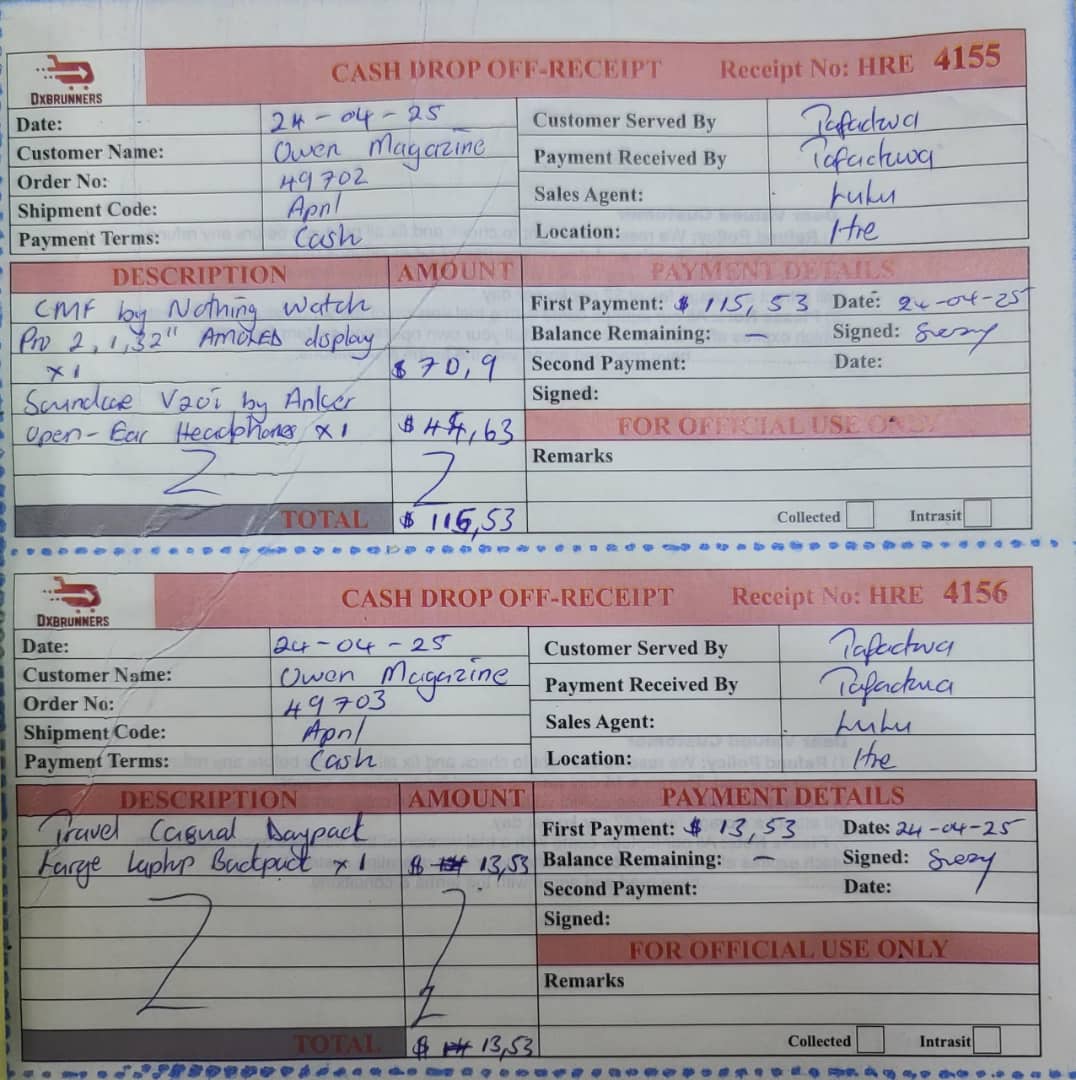 DXBRUNNERS
CASH DROP OFF-RECEIPT Receipt No: HRE 4155
Date: 24-04-25 Customer Served By Tafadwa
Customer Name: Owen Magazine Payment Received By Tafadwa
Order No: 49702 Sales Agent: Lulu
Shipment Code: April Location: Hre
Payment Terms: Cash
DESCRIPTION AMOUNT PAYMENT DETAILS
CMF by Nothing Watch First Payment: $ 115,53 Date: 24-04-25
Pro 2, 1,32" AMOLED display Balance Remaining: - Signed:
x1 $70,9 Second Payment: Date:
Soundcore V20i by Anker Signed:
Open-Ear Headphones x1 $44,63 FOR OFFICIAL USE ONLY
Remarks
TOTAL $ 115,53 Collected Intrasit
DXBRUNNERS
CASH DROP OFF-RECEIPT Receipt No: HRE 4156
Date: 24-04-25 Customer Served By Tafadwa
Customer Name: Owen Magazine Payment Received By Tafadwa
Order No: 49703 Sales Agent: Lulu
Shipment Code: April Location: Hre
Payment Terms: Cash
DESCRIPTION AMOUNT PAYMENT DETAILS
Travel Casual Daypack First Payment: $ 13,53 Date: 24-04-25
Large Laptop Backpack x1 $ 13,53 Balance Remaining: - Signed:
Second Payment: Date:
Signed:
FOR OFFICIAL USE ONLY
Remarks
TOTAL $ 13,53 Collected Intrasit